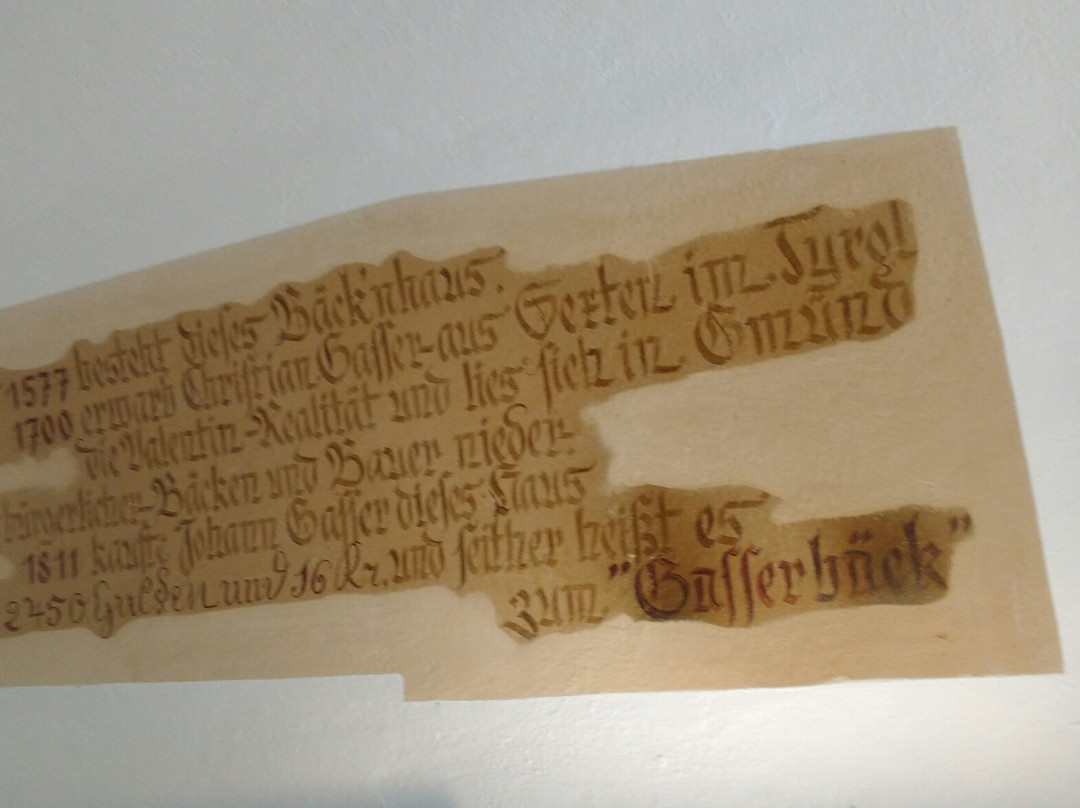 1577 besteht dieses Bäcknhaus.
1700 erwarb Christian Gasser aus Sexten im Tyrol
die Valentin-Realität und lies sich in Gmünd
bürgerlicher Bäcken und Bauer nieder.
1811 kaufte Johann Gasser dieses Haus
2450 Gulden und 16 Kr. und seither heißt es
zum "Gasserbäck"